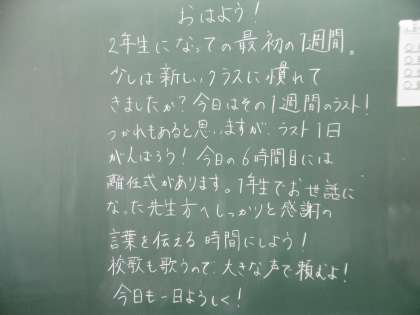 おはよう!
2年生になっての最初の1週間。
少しは新しいクラスに慣れて
きましたか?今日はその1週間のラスト!
つかれもあると思いますが、ラスト1日
がんばろう!今日の6時間目には
離任式があります。1年生でお世話に
なった先生方へしっかりと感謝の
言葉を伝える時間にしよう!
校歌も歌うので、大きな声で頼むよ!
今日も一日ようしく!